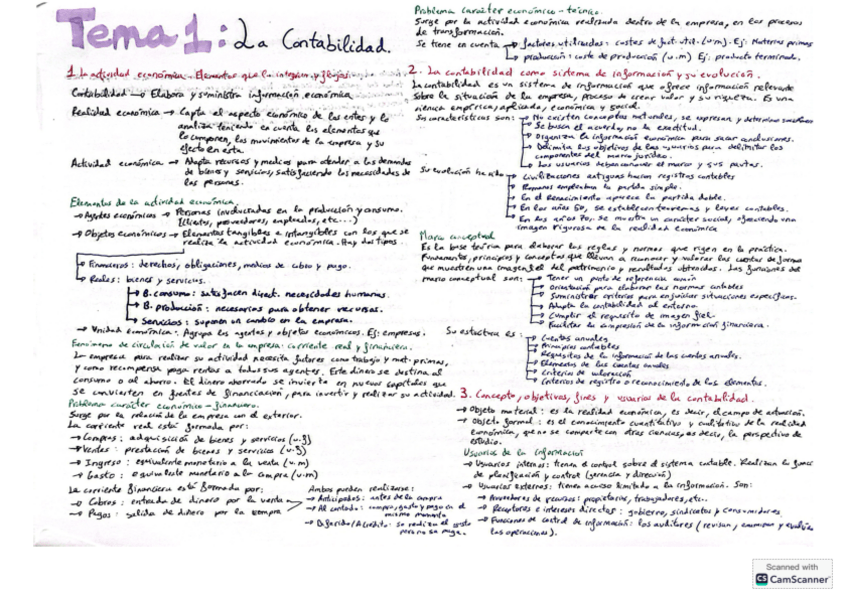 Tema 1: La Contabilidad.
1. La actividad económica. Elementos que la integran y flujos.
Contabilidad → Elabora y suministra información económica.
Realidad económica → Capta el aspecto económico de los entes y lo
analiza teniendo en cuenta los elementos que
lo componen, los movimientos de la empresa y su
efecto en esta.
Actividad económica → Adapta recursos y medios para atender a las demandas
de bienes y servicios, satisfaciendo las necesidades de
las personas.
Elementos de la actividad económica.
→ Agentes económicos → Personas involucradas en la producción y consumo.
(clientes, proveedores, empleados, etc...)
→ Objetos económicos → Elementos tangibles e intangibles con los que se
realiza la actividad económica. Hay dos tipos.
→ Financieros: derechos, obligaciones, medios de cobro y pago.
→ Reales: bienes y servicios.
→ B. consumo: satisfacen direct. necesidades humanas.
→ B. producción: necesarios para obtener recursos.
→ Servicios: suponen un cambio en la empresa.
→ Unidad económica: Agrupa los agentes y objetos económicos. Ej: empresas.
Fenómeno de circulación de valor en la empresa: corriente real y financiera.
La empresa para realizar su actividad necesita factores como trabajo y mat. primas,
y como recompensa paga rentas a todos sus agentes. Este dinero se destina al
consumo o al ahorro. El dinero ahorrado se invierte en nuevos capitales que
se convierten en fuentes de financiación, para invertir y realizar su actividad.
Problema carácter económico - financiero.
Surge por la relación de la empresa con el exterior.
La corriente real está formada por:
→ Compras: adquisición de bienes y servicios (u.f)
→ Ventas: prestación de bienes y servicios (u.f)
→ Ingreso: equivalente monetario a la venta (u.m)
→ Gasto: equivalente monetario a la compra (u.m)
La corriente financiera está formada por:
→ Cobros: entrada de dinero por la venta
→ Pagos: salida de dinero por la compra
Ambos pueden realizarse:
→ Anticipados: antes de la compra
→ Al contado: compro, gasto y pago en el
mismo momento
→ Diferido/A crédito: se realiza el gasto
pero no se paga.
Problema carácter económico - técnico.
Surge por la actividad económica realizada dentro de la empresa, en los procesos
de transformación.
Se tiene en cuenta → factores utilizados: costes de fact. util. (u.m). Ej: Materias primas
→ producción: coste de producción (u.m) Ej: producto terminado.
2. La contabilidad como sistema de información y su evolución.
La contabilidad es un sistema de información que ofrece información relevante
sobre la situación de la empresa, proceso de crear valor y su riqueza. Es una
ciencia empírica, aplicada, económica y social.
Sus características son: → No existen conceptos naturales, se expresan y determinan
→ Se busca el acuerdo, no la exactitud.
→ Organiza la información económica para sacar conclusiones.
→ Delimita los objetivos de los usuarios para delimitar los
componentes del marco jurídico.
→ Los usuarios deben conocer el marco y sus pautas.
Su evolución ha sido → Civilizaciones antiguas hacían registros contables
→ Romanos empleaban la partida simple.
→ En el Renacimiento aparece la partida doble.
→ En los años 50, se establecen teoremas y leyes contables.
→ En los años 70, se muestra un carácter social, ofreciendo una
imagen rigurosa de la realidad económica
Marco conceptual
Es la base teórica para elaborar las reglas y normas que rigen en la práctica.
Fundamentos, principios y conceptos que llevan a reconocer y valorar las cuentas de forma
que muestren una imagen fiel del patrimonio y resultados obtenidos. Las funciones del
marco conceptual son: → Tener un punto de referencia común
→ Orientación para elaborar las normas contables
→ Suministrar criterios para enjuiciar situaciones específicas.
→ Adapta la contabilidad al entorno.
→ Cumplir el requisito de imagen fiel.
→ Facilitar la comprensión de la información financiera.
Su estructura es: → Cuentas anuales
→ Principios contables
→ Requisitos de la información de las cuentas anuales.
→ Elementos de las cuentas anuales
→ Criterios de valoración
→ Criterios de registro o reconocimiento de los elementos.
3. Concepto, objetivos, fines y usuarios de la contabilidad.
→ Objeto material: es la realidad económica, es decir, el campo de actuación.
→ Objeto formal: es el conocimiento cuantitativo y cualitativo de la realidad
económica, que no se comparte con otras ciencias, es decir, la perspectiva de
estudio.
Usuarios de la información
→ Usuarios internos: tienen el control sobre el sistema contable. Realizan la func.
de planificación y control (gerencia y dirección)
→ Usuarios externos: tienen acceso limitado a la información. son:
→ Proveedores de recursos: propietarios, trabajadores, etc.
→ Receptores e intereses directos: gobierno, sindicatos y consumidores.
→ Funciones de control de información: los auditores (revisan, examinan y evalúan
las operaciones).
Scanned with
CS CamScanner